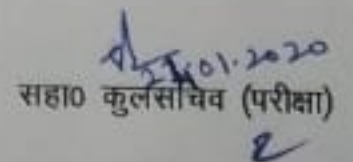 27.01.2020
सहा0 कुलसचिव (परीक्षा)